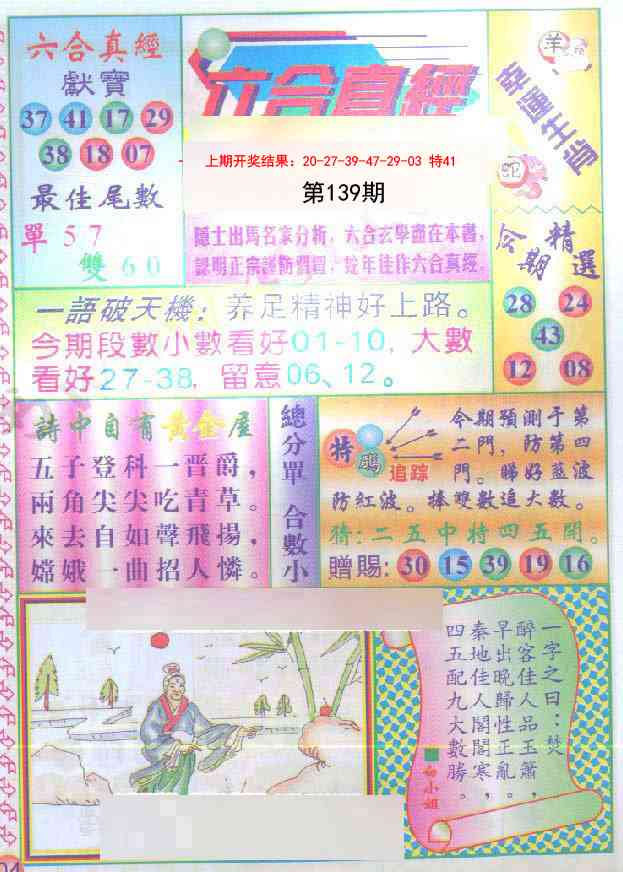 六合真經
獻寶
37 41 17 29
38 18 07
最佳尾數
單57
雙60
六合真經
上期开奖结果：20-27-39-47-29-03 特41
第139期
隱士出馬名家分析，六合玄學盡在本書，
認明正宗謹防假冒，蛇年佳作六合真經.
羊
幸運生肖
蛇
今期
精選
28 24
43
12 08
一語破天機：养足精神好上路。
今期段數小數看好01-10，大數
看好27-38，留意06、12。
詩中自有黃金屋
五子登科一晋爵，
兩角尖尖吃青草。
來去自如聲飛揚，
嫦娥一曲招人憐。
總分單 合數小
特
碼
追踪
今期預測于第
二門，防第四
門。睇好藍波
防紅波。棒雙數追大數。
猜：二五中特四五開。
贈賜：30 15 39 19 16
一字之曰：焚
醉客佳人品玉簫，
早出晚歸性正亂。
秦地佳人閣閣寒，
四五配九大數勝。
白小姐
04